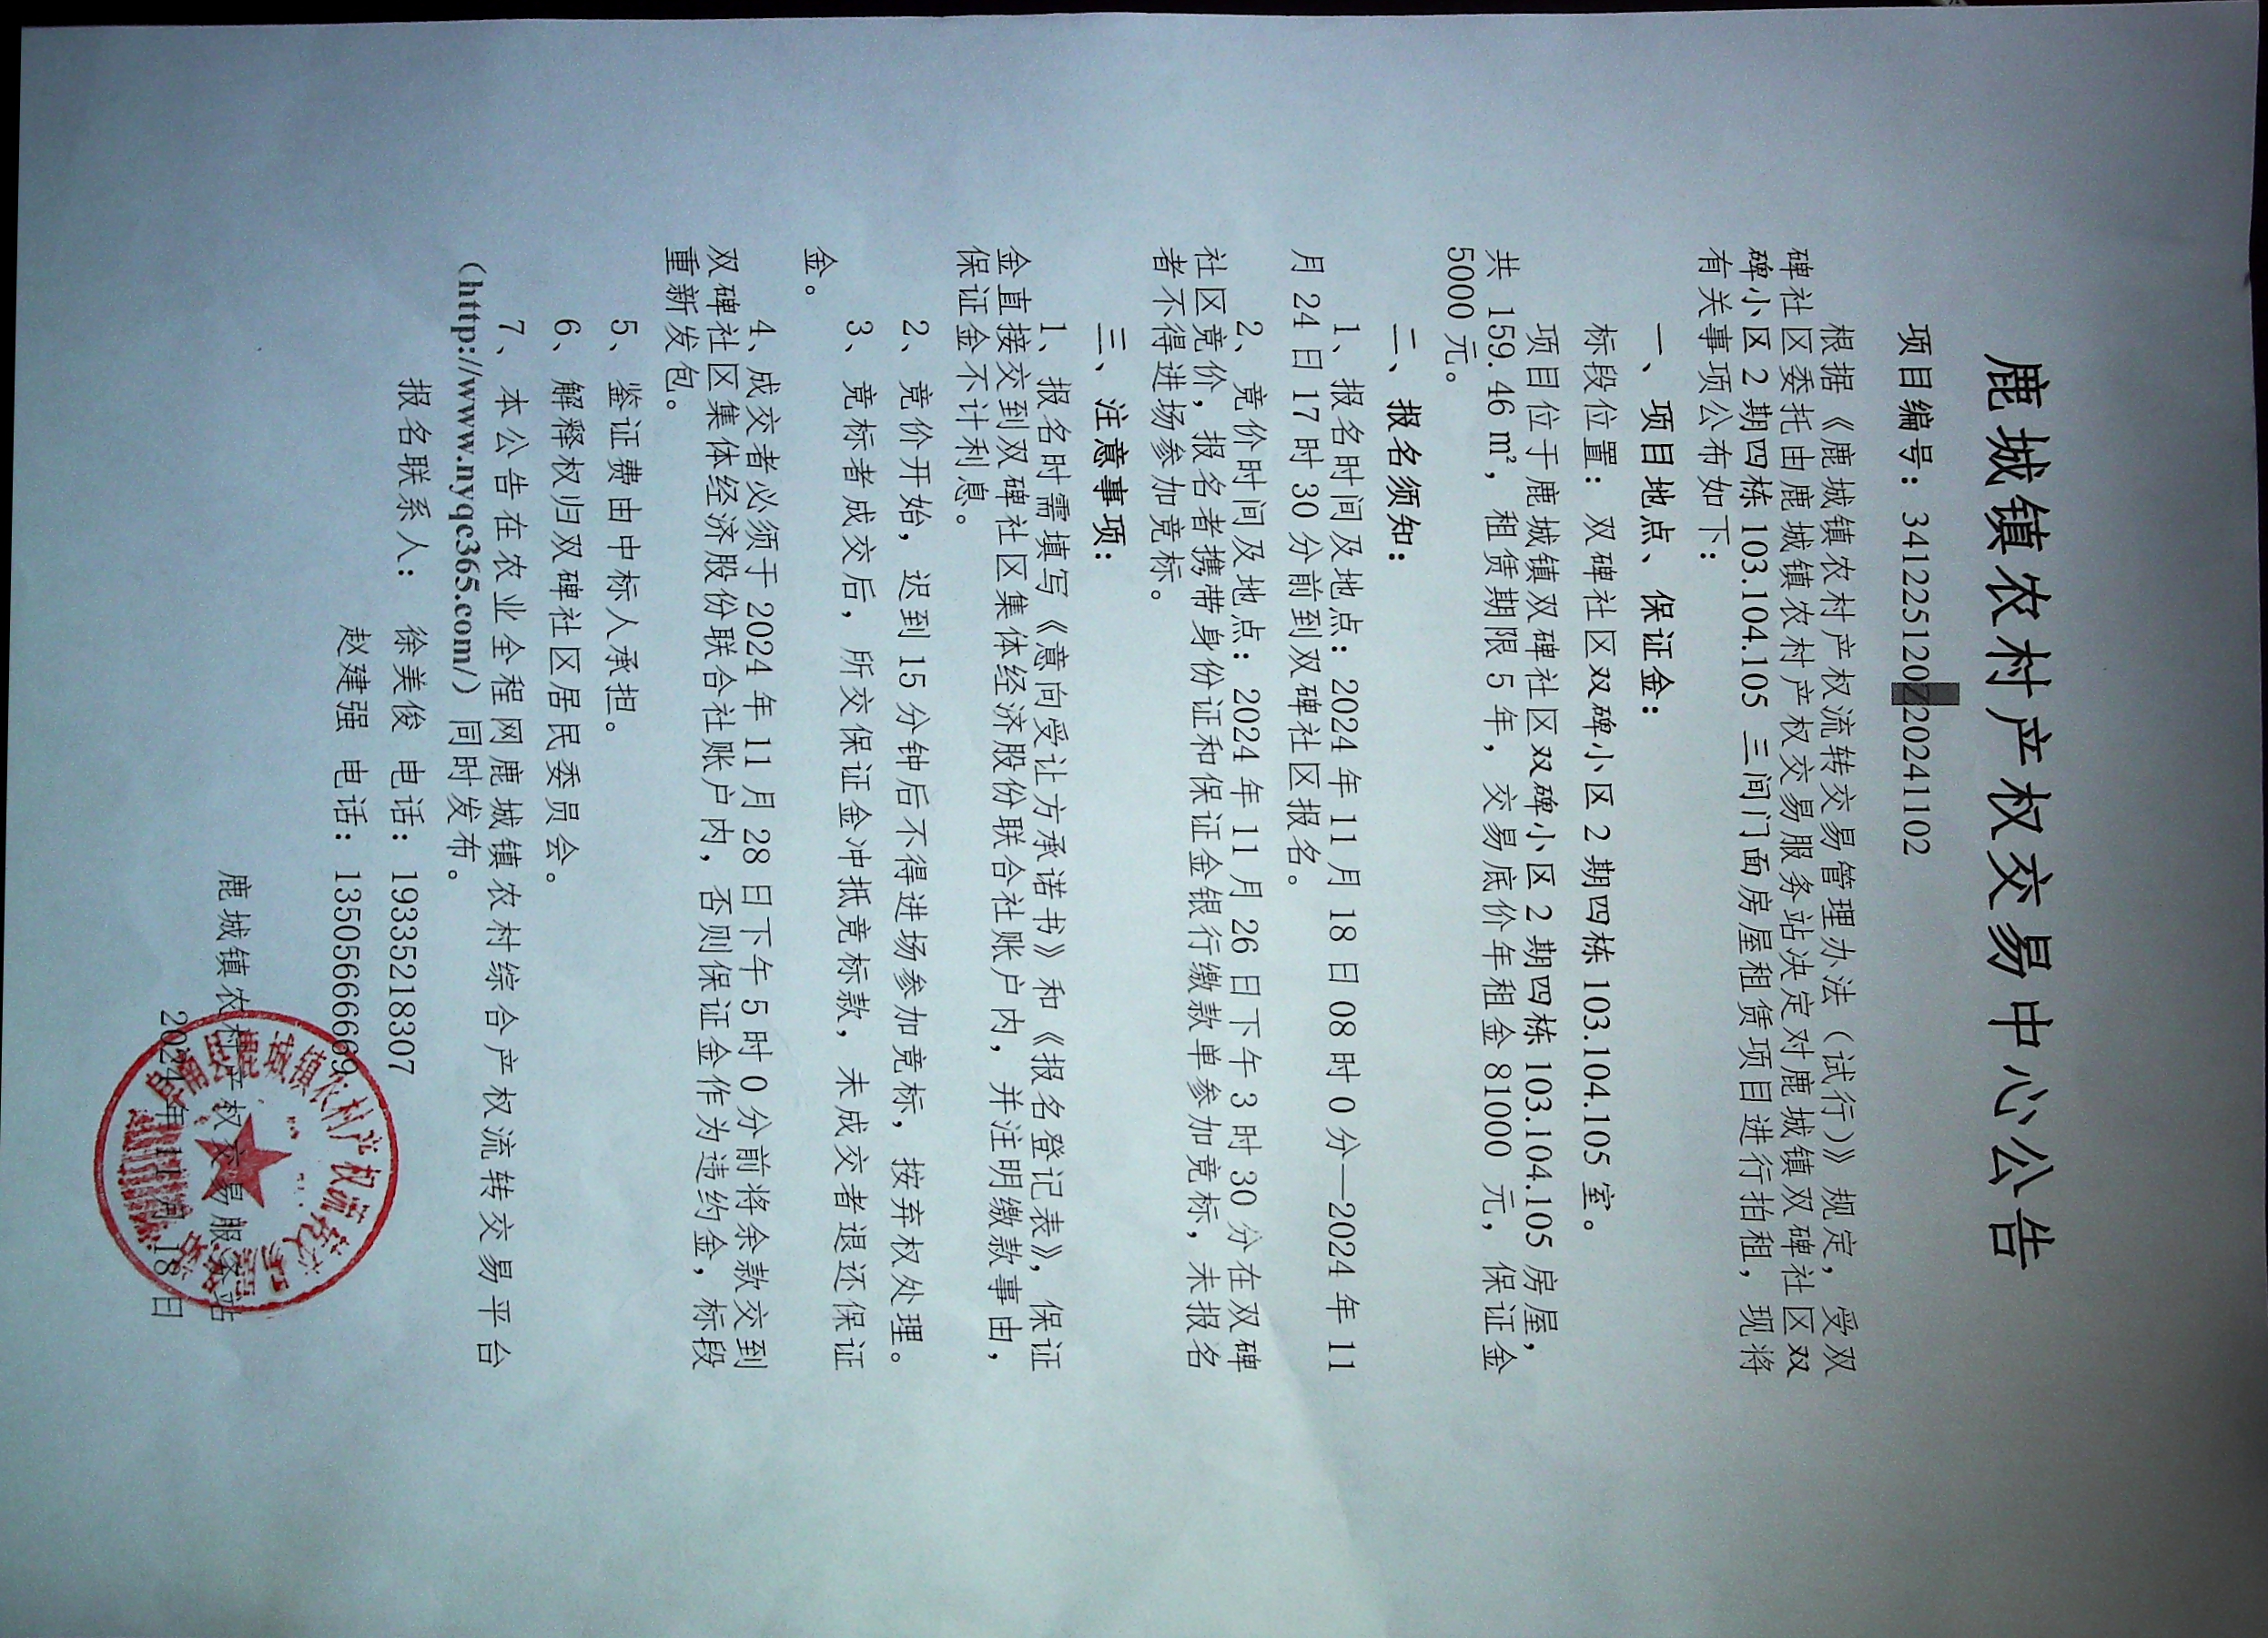 鹿城镇农村产权交易中心公告
项目编号：341225120220241102
根据《鹿城镇农村产权流转交易管理办法（试行）》规定，受双
碑社区委托由鹿城镇农村产权交易服务站决定对鹿城镇双碑社区双
碑小区 2 期四栋 103.104.105 三间门面房屋租赁项目进行拍租，现将
有关事项公布如下：
一、项目地点、保证金：
标段位置：双碑社区双碑小区 2 期四栋 103.104.105 室。
项目位于鹿城镇双碑社区双碑小区 2 期四栋 103.104.105 房屋，
共 159.46 ㎡，租赁期限 5 年，交易底价年租金 81000 元，保证金
5000 元。
二、报名须知：
1、报名时间及地点：2024 年 11 月 18 日 08 时 0 分—2024 年 11
月 24 日 17 时 30 分前到双碑社区报名。
2、竞价时间及地点：2024 年 11 月 26 日下午 3 时 30 分在双碑
社区竞价，报名者携带身份证和保证金银行缴款单参加竞标，未报名
者不得进场参加竞标。
三、注意事项：
1、报名时需填写《意向受让方承诺书》和《报名登记表》，保证
金直接交到双碑社区集体经济股份联合社账户内，并注明缴款事由，
保证金不计利息。
2、竞价开始，迟到 15 分钟后不得进场参加竞标，按弃权处理。
3、竞标者成交后，所交保证金冲抵竞标款，未成交者退还保证
金。
4、成交者必须于 2024 年 11 月 28 日下午 5 时 0 分前将余款交到
双碑社区集体经济股份联合社账户内，否则保证金作为违约金，标段
重新发包。
5、鉴证费由中标人承担。
6、解释权归双碑社区居民委员会。
7、本公告在农业全程网鹿城镇农村综合产权流转交易平台
（http://www.nyqc365.com/）同时发布。
报名联系人： 徐美俊 电话：19335218307
赵建强 电话：13505666669
鹿城镇农村产权交易服务站
2024 年 11 月 18 日
阜南县鹿城镇农村产权流转交易服务站